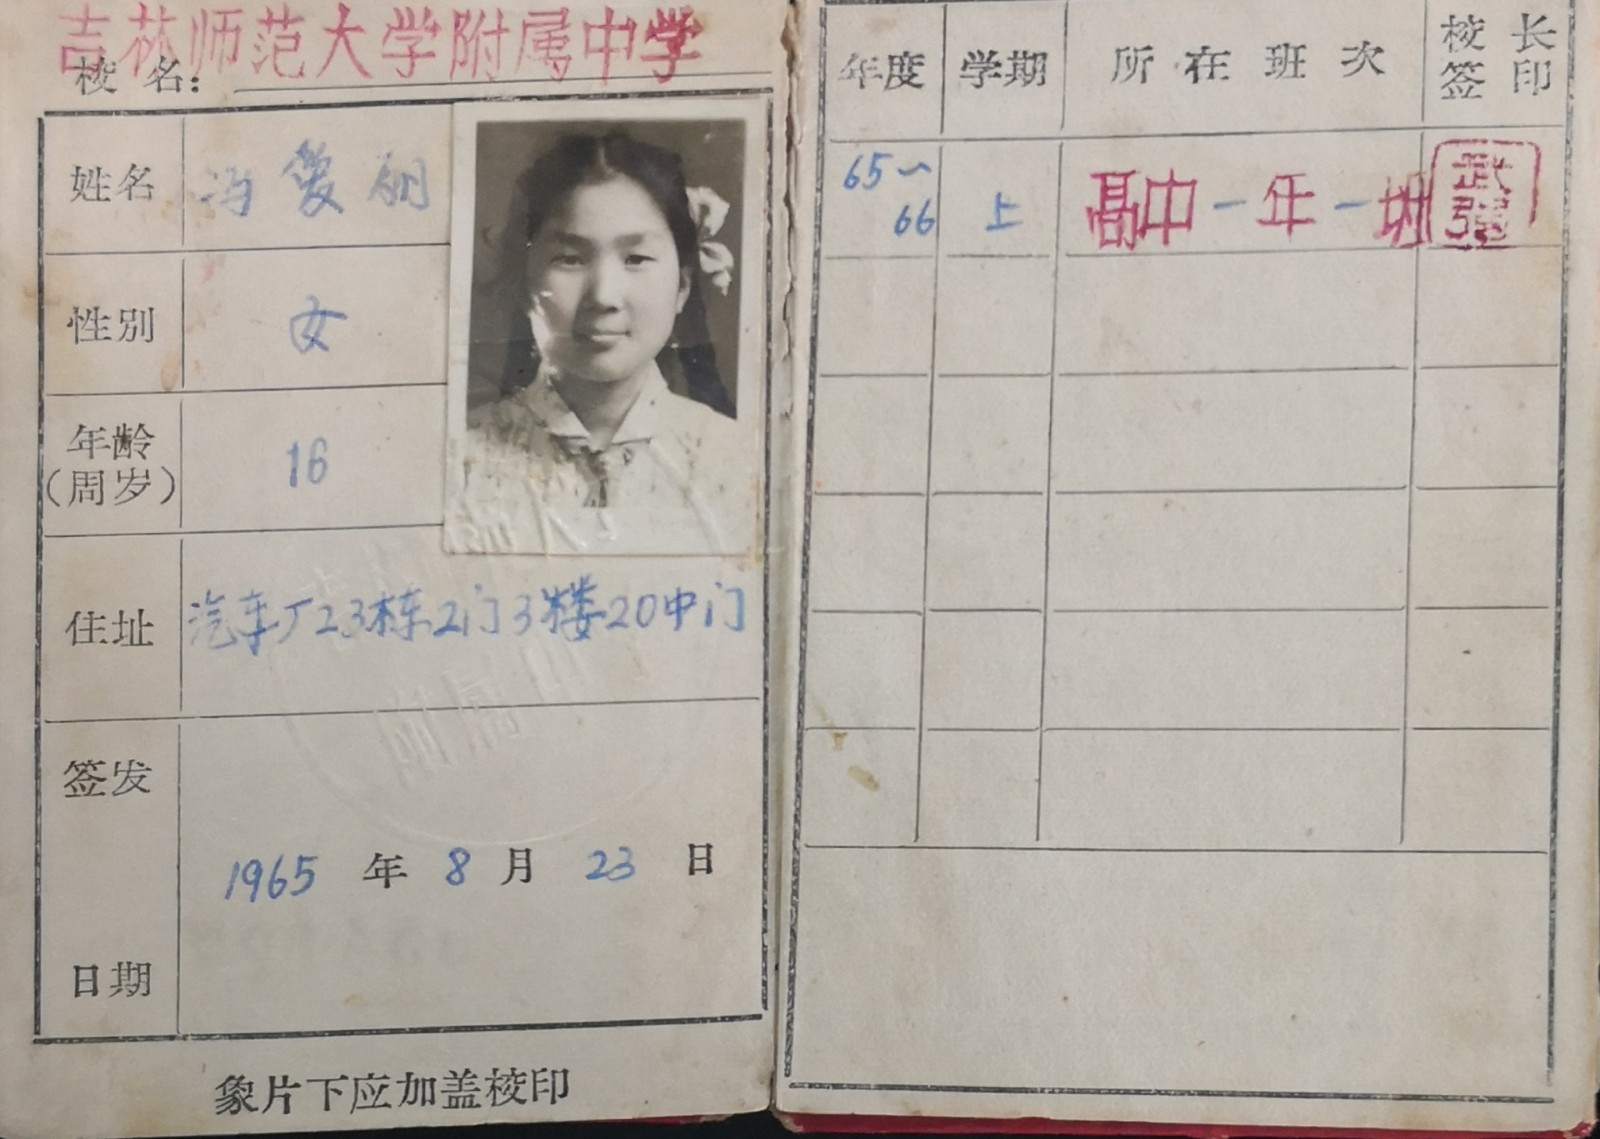 吉林师范大学附属中学
校名：
姓名 冯爱丽
性别 女
年龄
（周岁） 16
住址 汽车厂23栋2门3楼20中门
签发
1965 年 8 月 23 日
日期
象片下应加盖校印
年度 学期 所在班次 校长
签印
65～
66 上 高中一年一班
武强
附属中